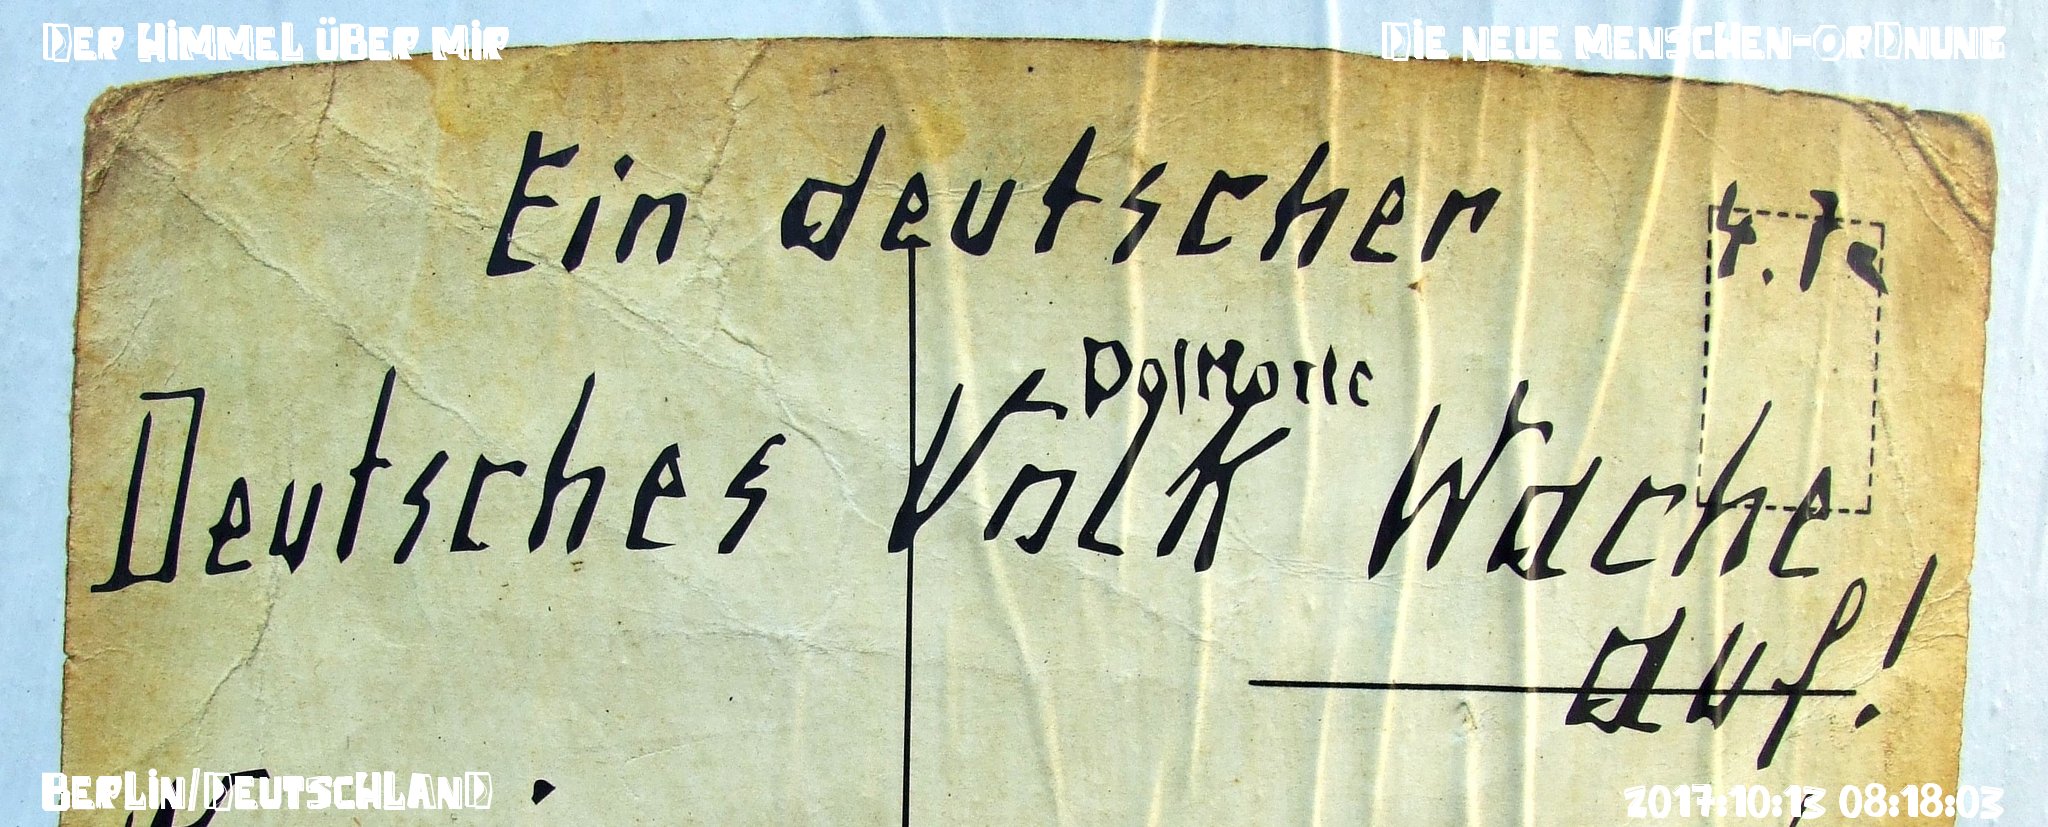 DER HIMMEL ÜBER MIR
DIE NEUE MENSCHEN-ORDNUNG
Ein deutscher
Deutsches Volk Wache
auf!
BERLIN/DEUTSCHLAND
2017:10:13 08:18:03